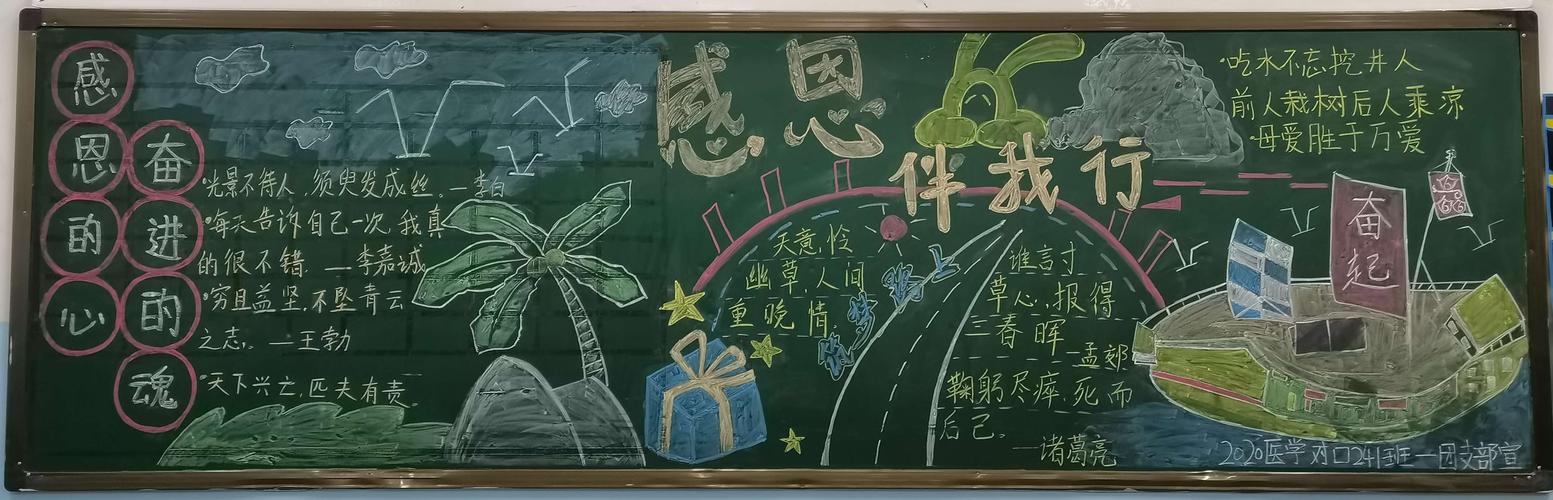 感恩的心
奋进的魂
光景不待人,须臾发成丝。—李白
每天告诉自己一次,我真
的很不错.—李嘉诚
穷且益坚,不坠青云
之志。—王勃
天下兴亡,匹夫有责。
感恩
伴我行
天意怜
幽草,人间
重晚情.
筑梦路上
谁言寸
草心,报得
三春晖
—孟郊
鞠躬尽瘁,死而
后已。
—诸葛亮
吃水不忘挖井人
前人栽树后人乘凉
母爱胜于万爱
奋起
2020医学对口241班—团支部宣